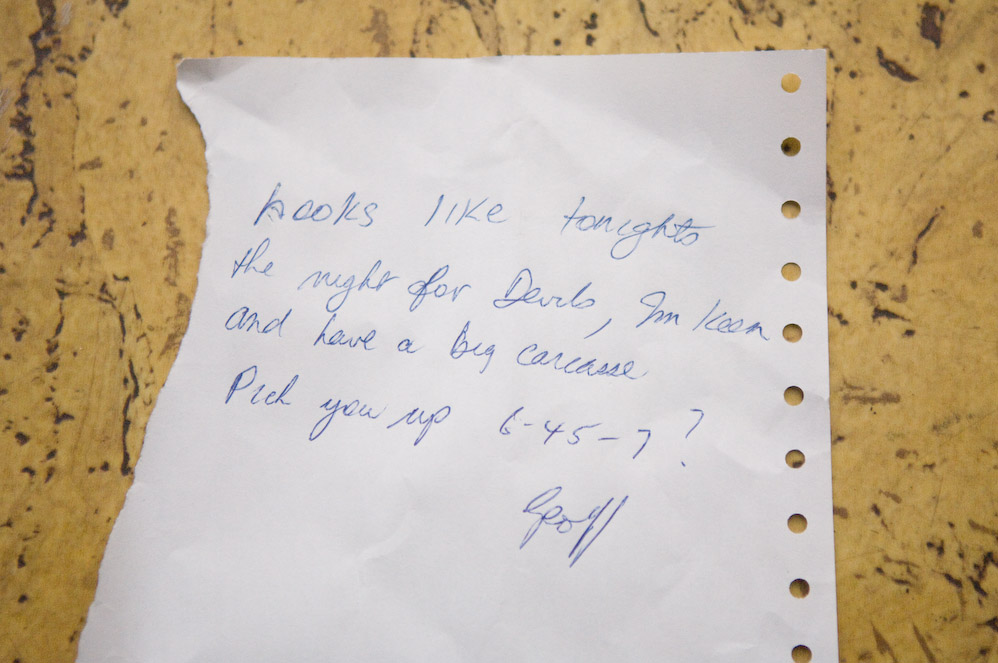 Looks like tonights
the night for Devils, Im Keen
and have a big carcasse
Pick you up 6-45-7?
Geoff